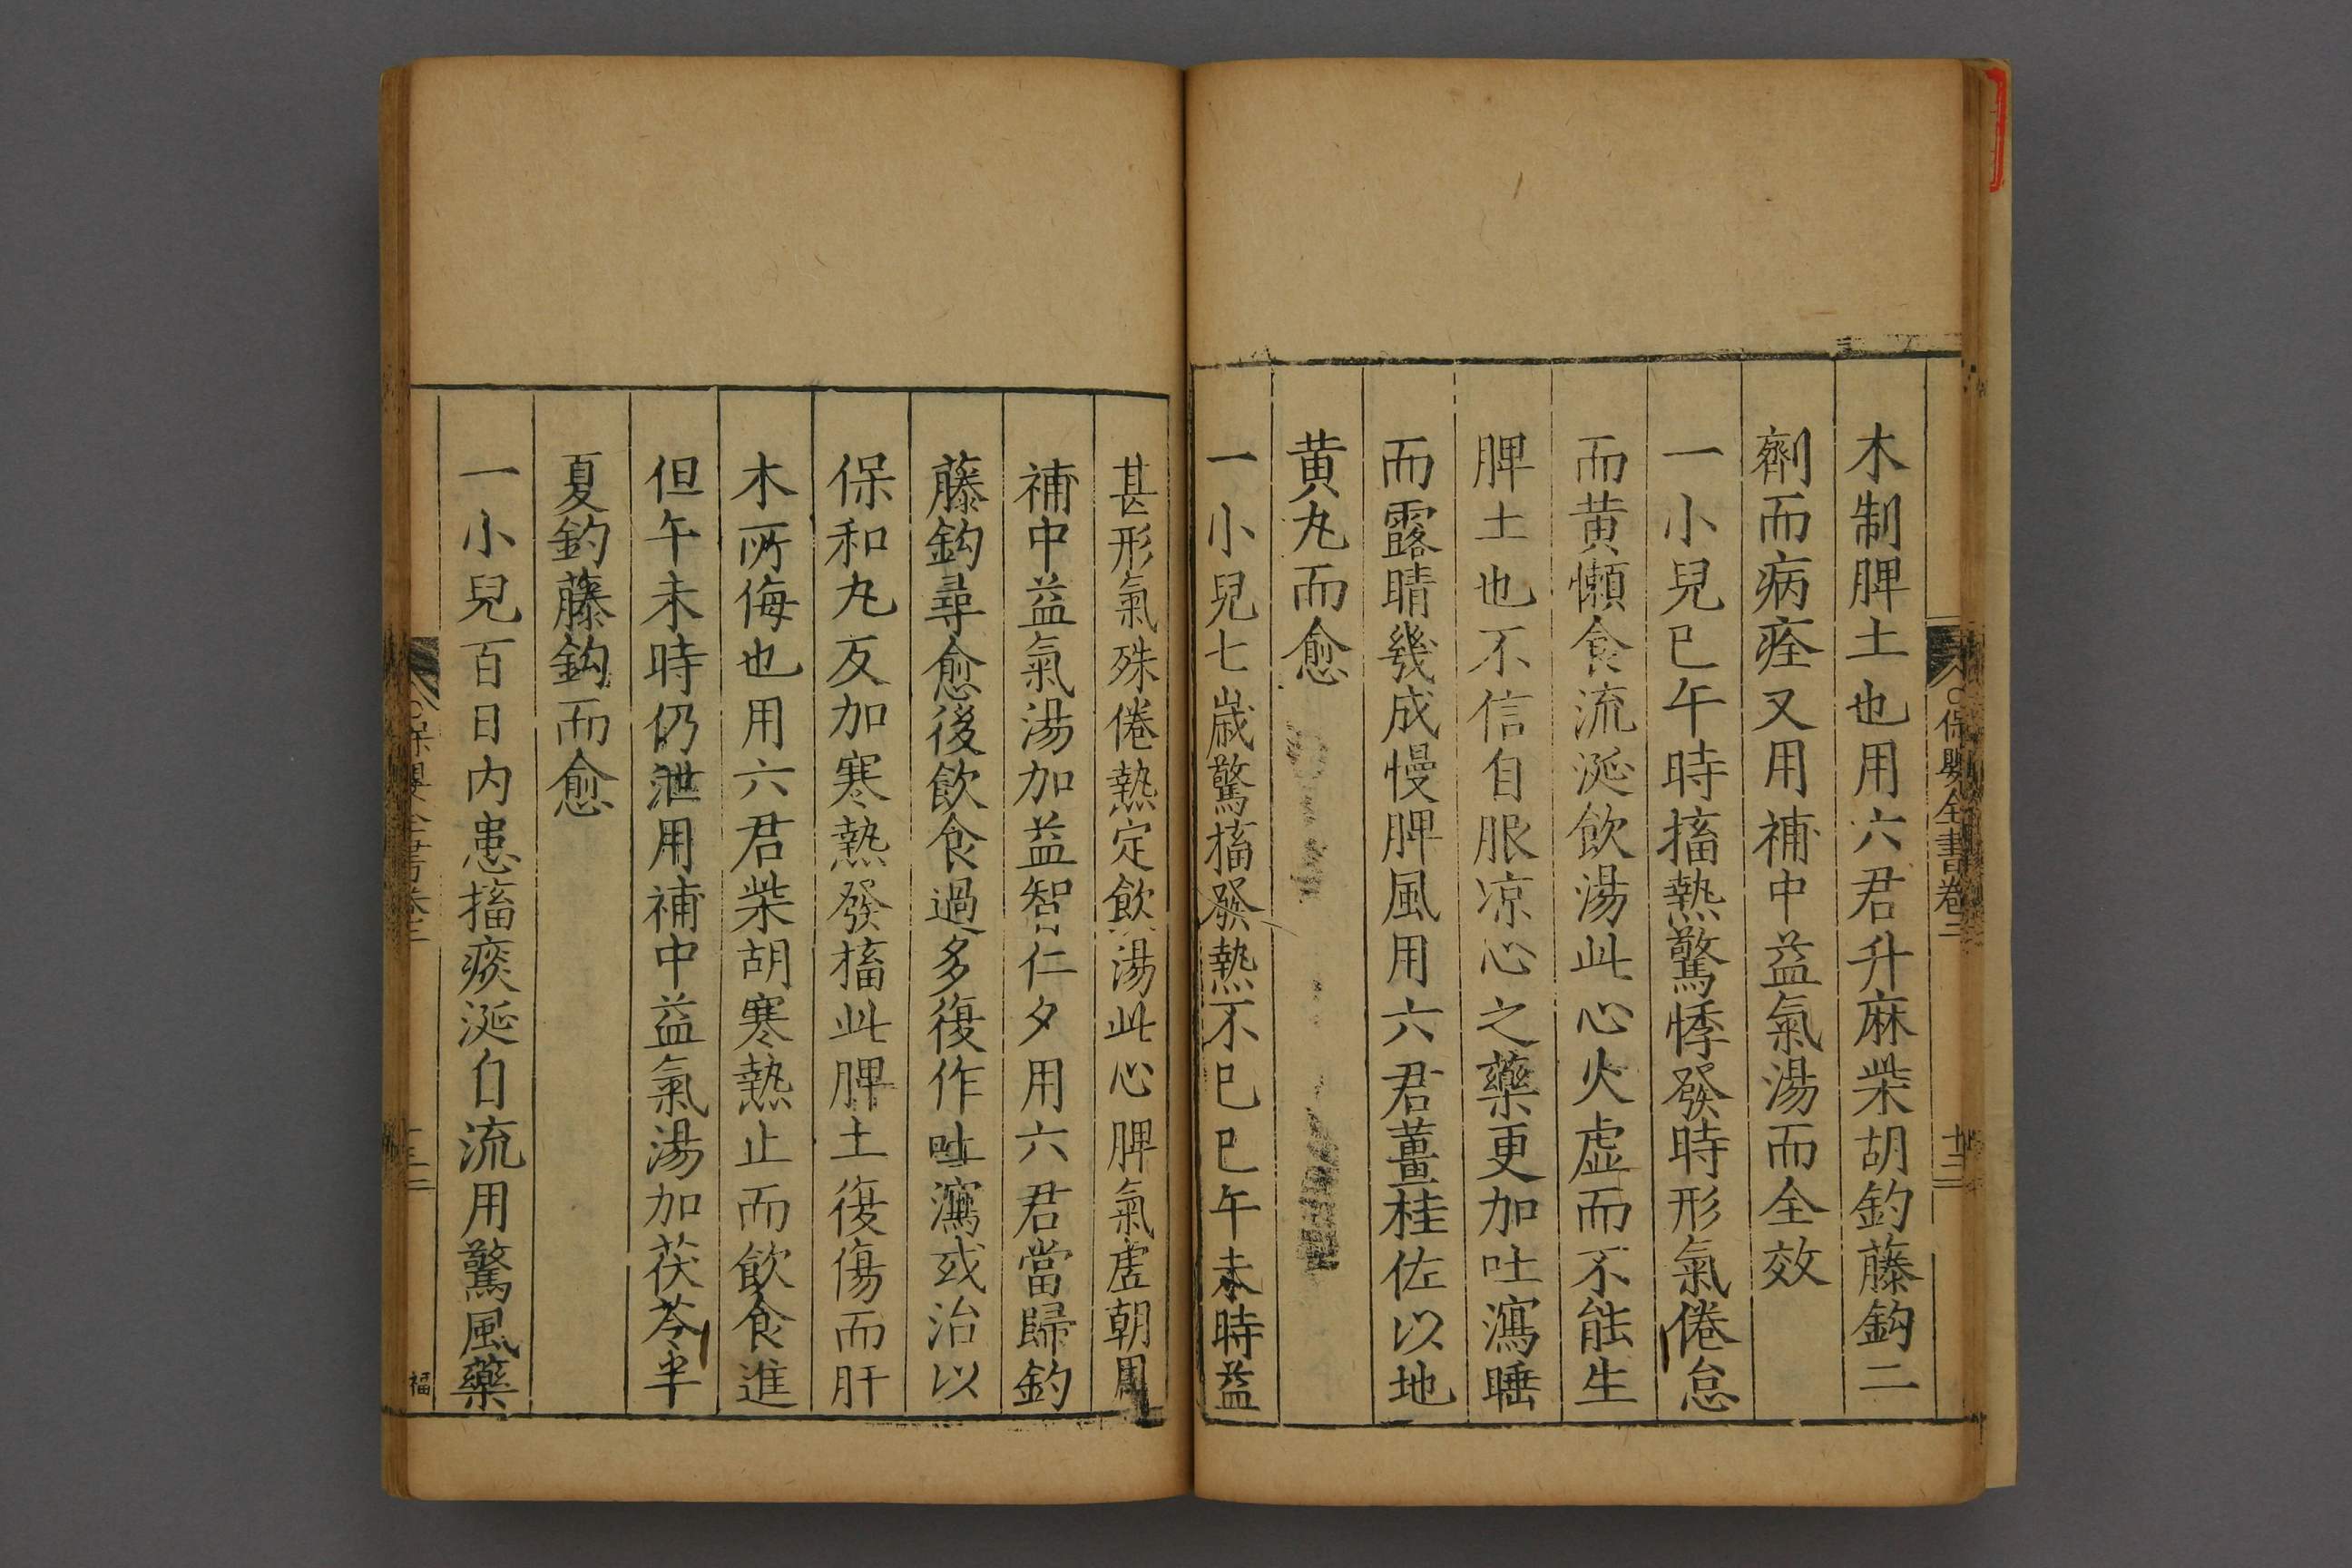 木制脾土也用六君升麻柴胡釣藤鈎二
劑而病痊又用補中益氣湯而全效
一小兒巳午時搐熱驚悸發時形氣倦怠
而黄懶食流涎飲湯此心火虚而不能生
脾土也不信自服凉心之藥更加吐瀉睡
而露睛幾成慢脾風用六君薑桂佐以地
黄丸而愈
一小兒七歲驚搐發熱不已巳午未時益
甚形氣殊倦熱定飲湯此心脾氣虚朝用
補中益氣湯加益智仁夕用六君當歸釣
藤鈎尋愈後飲食過多復作吐瀉或治以
保和丸反加寒熱發搐此脾土復傷而肝
木所侮也用六君柴胡寒熱止而飲食進
但午未時仍泄用補中益氣湯加茯苓半
夏釣藤鈎而愈
一小兒百日内患搐痰涎自流用驚風藥
保嬰全書卷三
福